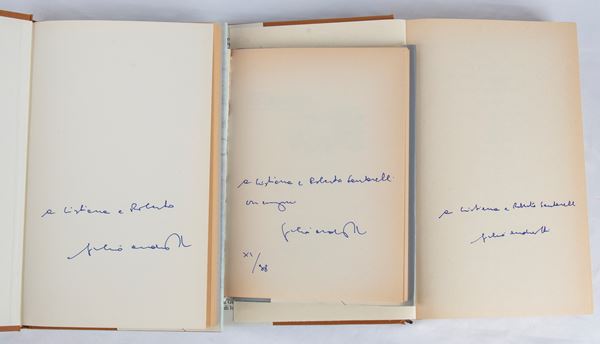 a Cristiana e Roberto
Giulio Andreotti
a Cristiana e Roberto Santarelli
con auguri
Giulio Andreotti
XI/88
a Cristiana e Roberto Santarelli
Giulio Andreotti